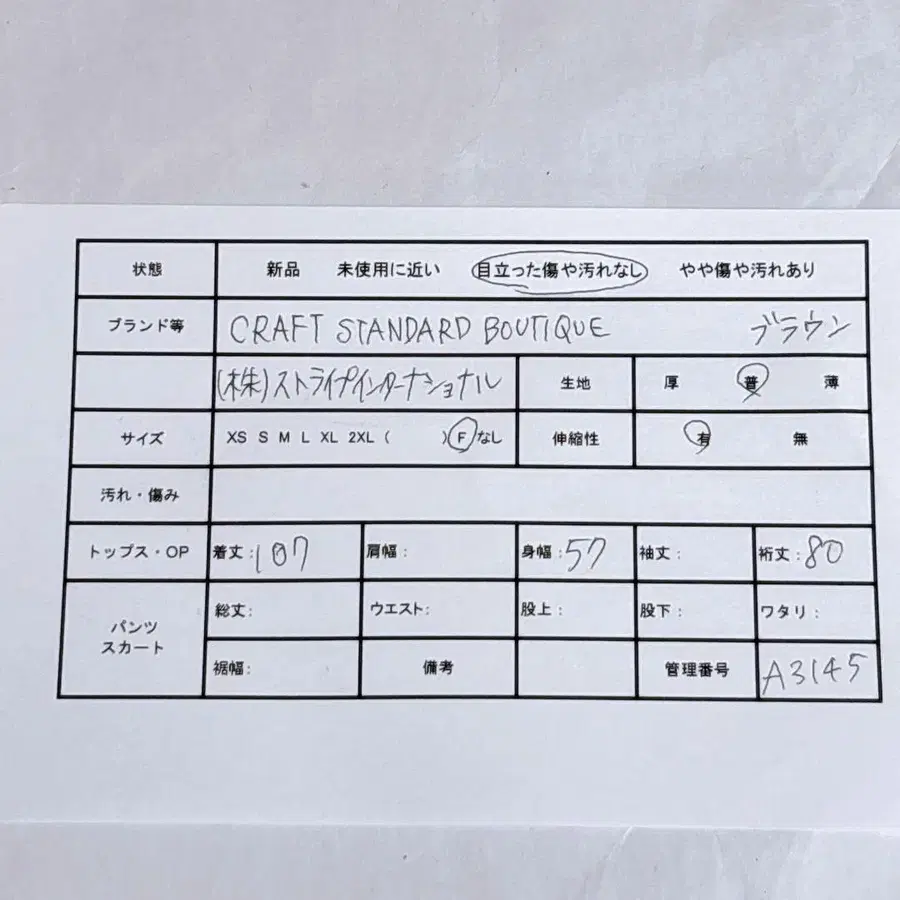 状態 新品 未使用に近い 目立った傷や汚れなし やや傷や汚れあり
ブランド等 CRAFT STANDARD BOUTIQUE ブラウン
(株)ストライプインターナショナル 生地 厚 普 薄
サイズ XS S M L XL 2XL ( ) F なし 伸縮性 有 無
汚れ・傷み
トップス・OP 着丈:107 肩幅: 身幅:57 袖丈: 裄丈:80
パンツ スカート 総丈: ウエスト: 股上: 股下: ワタリ:
裾幅: 備考 管理番号 A3145